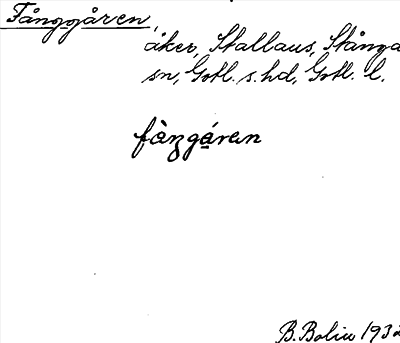 Fånggåren,
åker, Stallaus, Stånga
sn, Gotl. s. hd, Gotl. l.
fàŋgáren
B. Bolin 1932